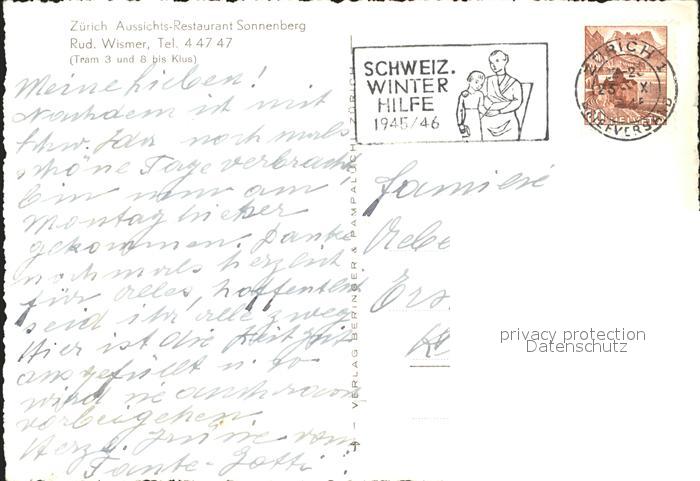 Zürich Aussichts-Restaurant Sonnenberg
Rud. Wismer, Tel. 4 47 47
(Tram 3 und 8 bis Klus)
Meine Lieben!
Nachdem ich mit
Schw. Ida noch mals
schöne Tage verbracht,
bin nun am
Montag hieher
gekommen. Danke
nochmals herzlich
für alles, hoffentlich
seid ihr alle zweg.
Hier ist die Zeit
ausgefüllt u. so
wird sie auch rasch
vorbeigehen.
Herzl. Grüsse vom
Tante Gotti
VERLAG BERINGER & PAMPALUCHI, ZÜRICH
SCHWEIZ.
WINTER
HILFE
1945/46
ZÜRICH 1
BRIEFVERSAND
HELVETIA
Familie
privacy protection
Datenschutz